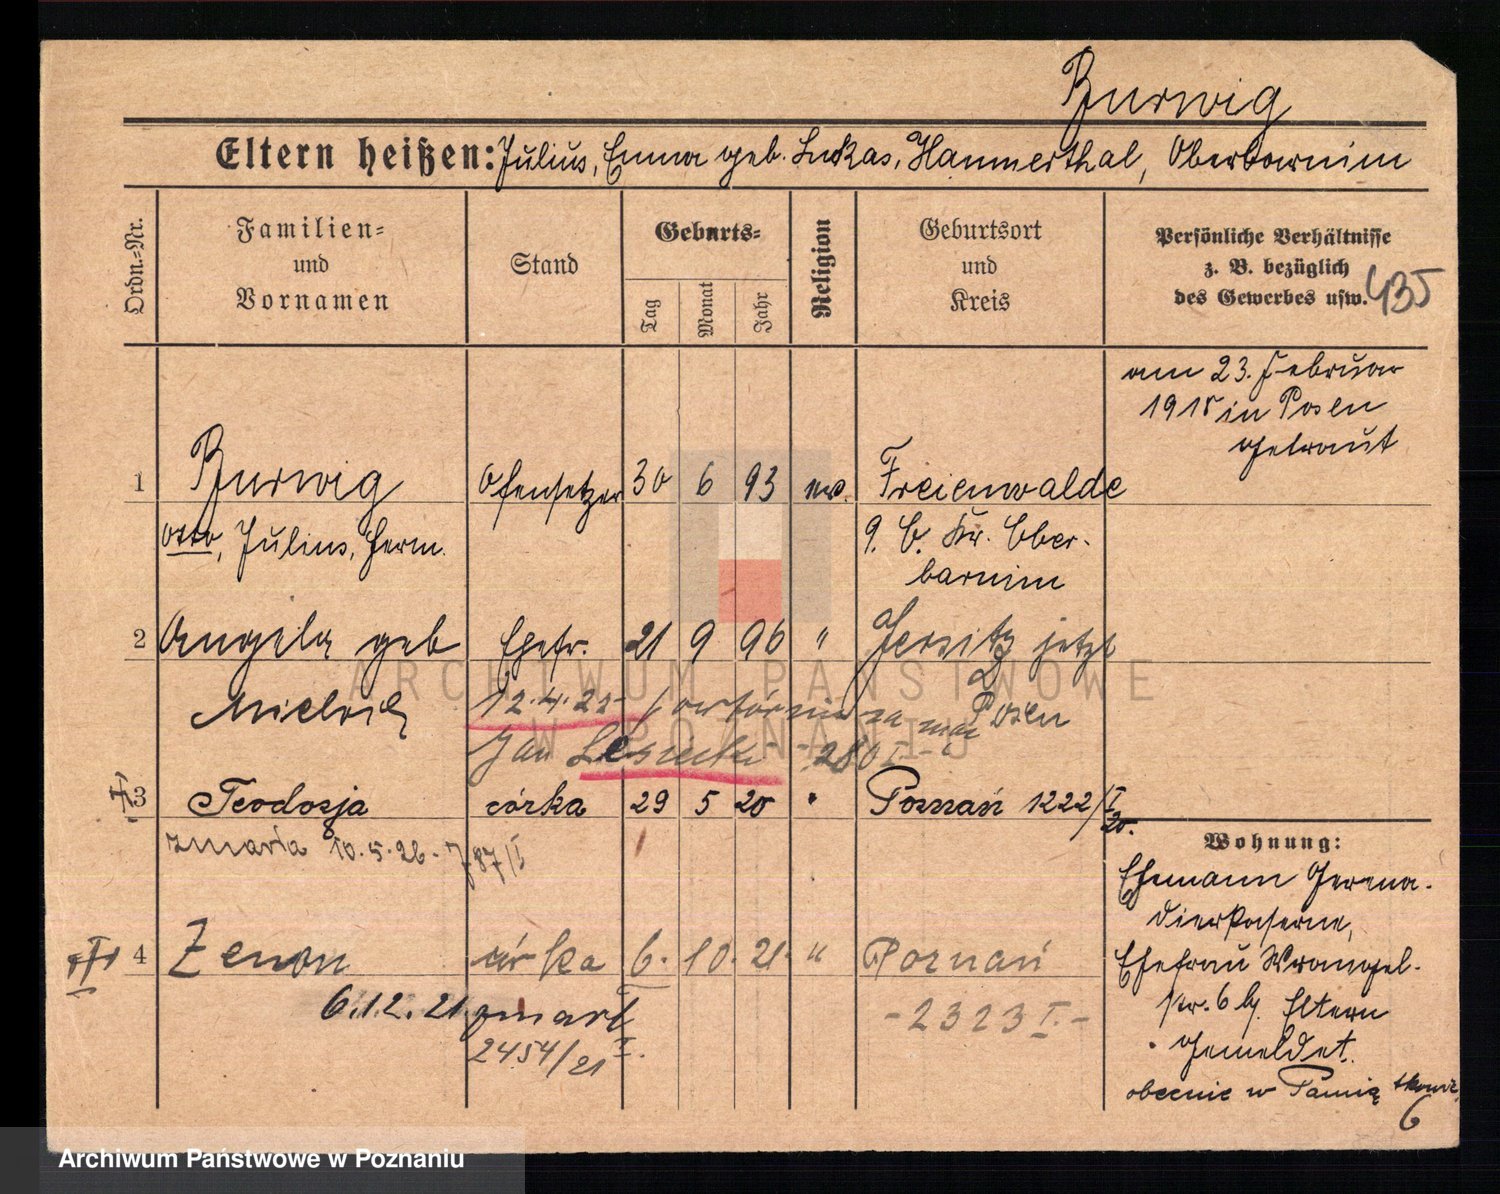 Burwig
Eltern heißen: Julius, Emma geb. Lukas, Hammerthal, Oberbarnim
Ordn.=Nr.
Familien=
und
Vornamen
Stand
Geburts=
Tag
Monat
Jahr
Religion
Geburtsort
und
Kreis
Persönliche Verhältnisse
z. B. bezüglich
des Gewerbes usw.
435
am 23. Februar
1918 in Posen
getraut
1 Burwig Ofensetzer 30 6 93 ev. Freienwalde
Otto, Julius, Herm. Kr. Ober-
barnim
2 Angela geb Ehefr. 21 9 96 " Jersitz jetzt
Posen
12.4.22
Jan
280 I
3 Teodozja córka 29 5 20 " Poznań 1222/I
20.
zmarła 10.5.26 - 787/I
4 Zenon córka 6. 10. 21. " Poznań
6.12.21 zmarł - 2323 I. -
2454/21 I.
Wohnung:
Ehemann Grena-
dierkaserne,
Ehefrau Wrangel-
str. 6 b/ Eltern
gemeldet.
obecnie w
6
ARCHIWUM PAŃSTWOWE
W POZNANIU
Archiwum Państwowe w Poznaniu